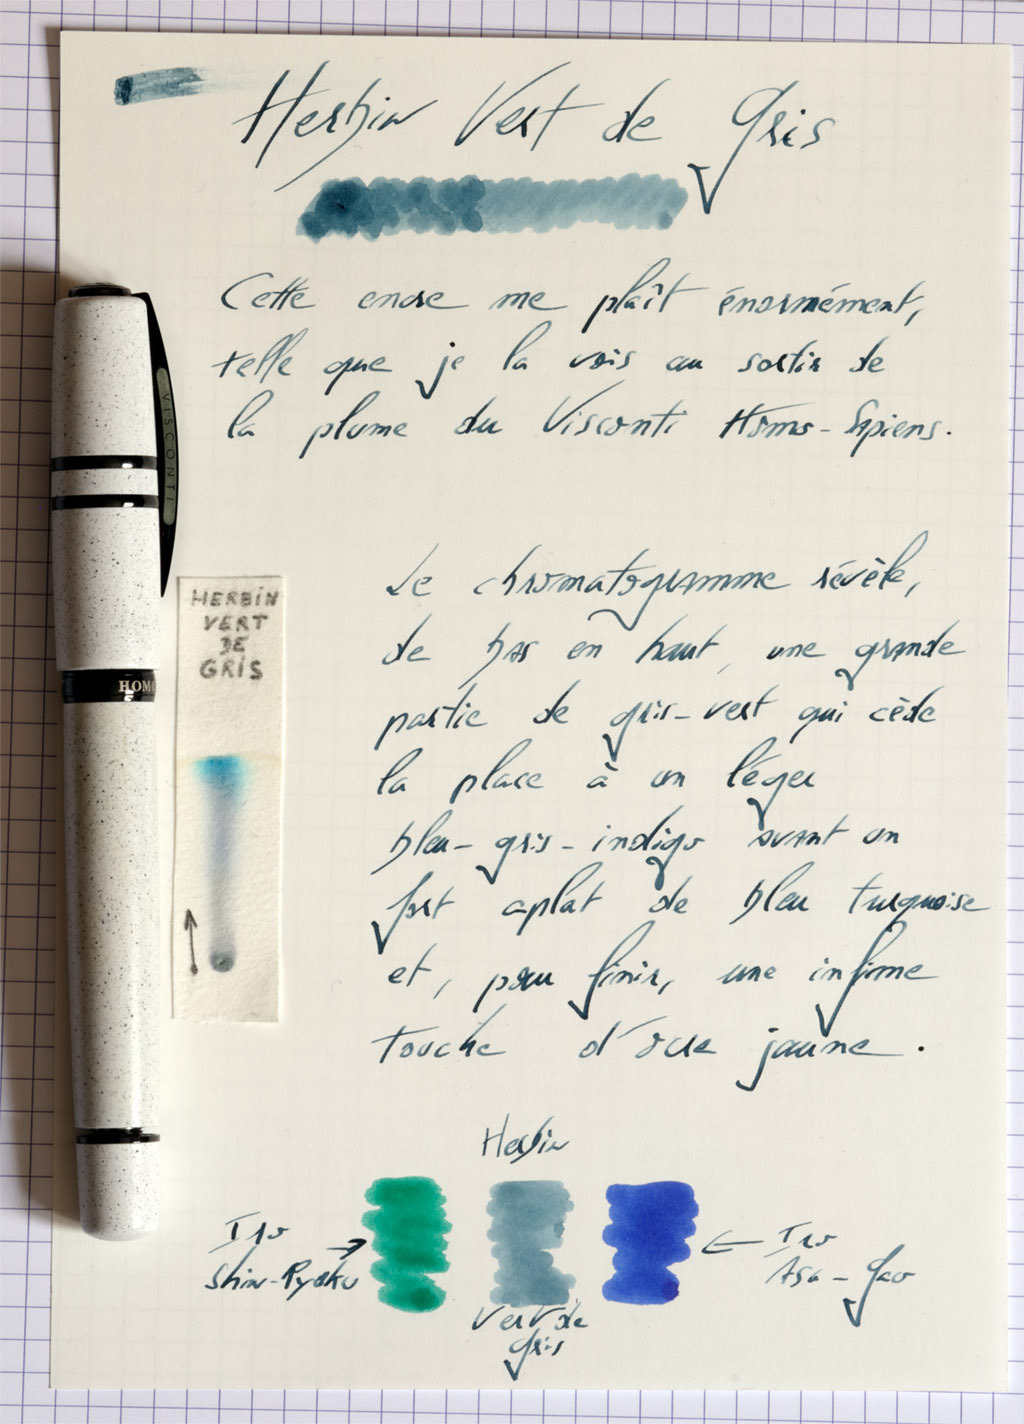 Herbin Vert de Gris
Cette encre me plaît énormément,
telle que je la vois au sortir de
la plume du Visconti Homo-Sapiens.
VISCONTI
HOMO
HERBIN
VERT
DE
GRIS
Le chromatogramme révèle,
de bas en haut, une grande
partie de gris-vert qui cède
la place à un léger
bleu-gris-indigo avant un
fort aplat de bleu turquoise
et, pour finir, une infime
touche d'ocre jaune.
Herbin
Iro
Shin-Ryoku
Iro
Asa-Gao
Vert de
Gris